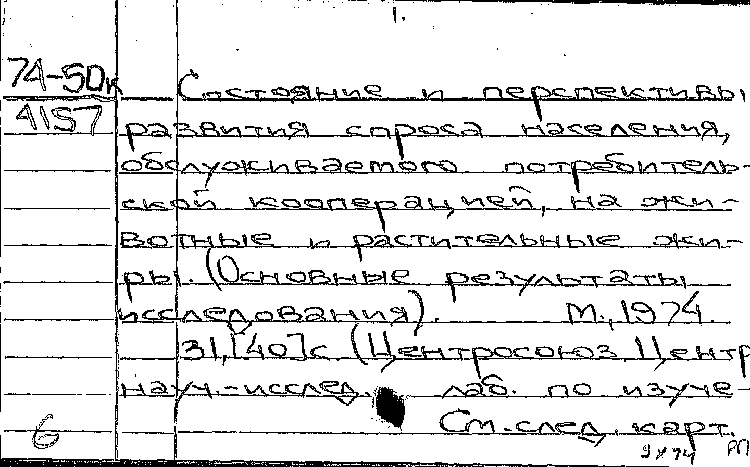 1.
74-50к Состояние и перспективы
4157 развития спроса населения,
обслуживаемого потребитель-
ской кооперацией, на жи-
вотные и растительные жи-
ры. (Основные результаты
исследования). М., 1974.
31, [40] с (Центросоюз Центр
науч.-исслед. лаб. по изуче-
См. след. карт.
6
9 X 74 РП